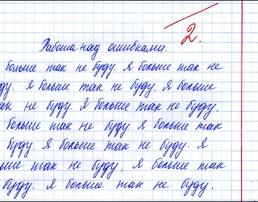 2.
Работа над ошибками.
больше так не буду. Я больше так не
у. Я больше так не буду. Я больше
ак не буду. Я больше так не буду.
больше так не буду. Я больше так
буду. Я больше так не буду. Я
ьше так не буду. Я больше так
буду. Я больше так не буду.